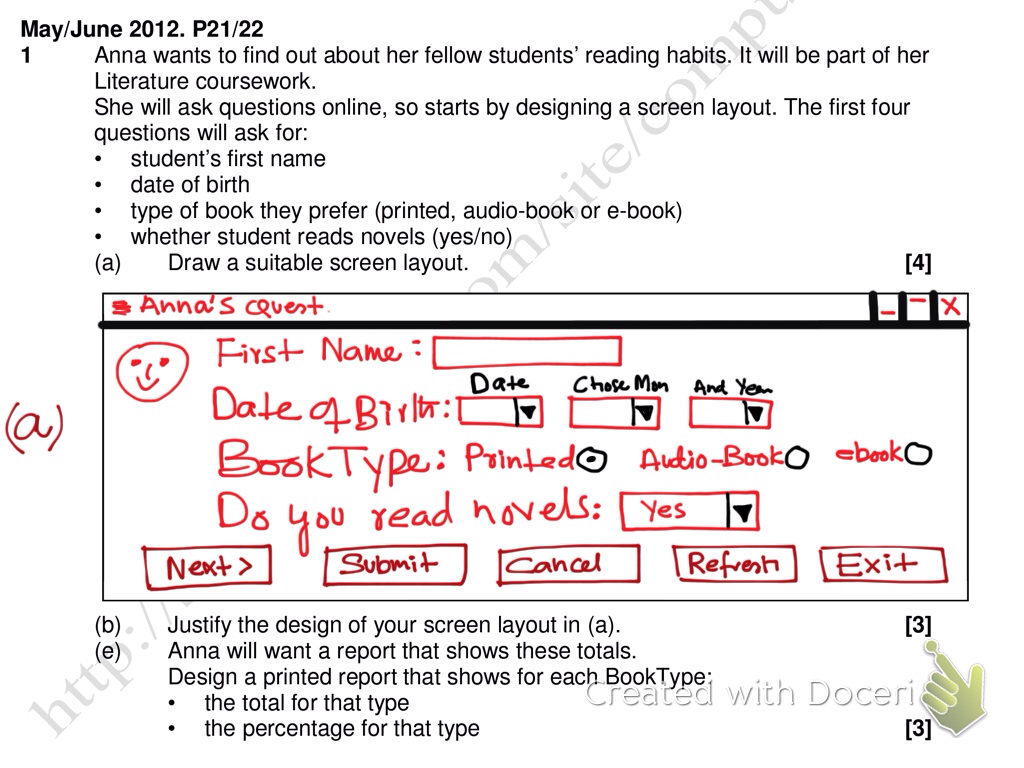 May/June 2012. P21/22
1 Anna wants to find out about her fellow students' reading habits. It will be part of her
Literature coursework.
She will ask questions online, so starts by designing a screen layout. The first four
questions will ask for:
• student's first name
• date of birth
• type of book they prefer (printed, audio-book or e-book)
• whether student reads novels (yes/no)
(a) Draw a suitable screen layout. [4]
Anna's Quest. X
First Name:
Date Chose Mon And Year
(a)
Date of Birth:
Book Type: Printed Audio-Book ebook
Do you read novels: Yes
Next> Submit Cancel Refresh Exit
(b) Justify the design of your screen layout in (a). [3]
(e) Anna will want a report that shows these totals.
Design a printed report that shows for each BookType:
• the total for that type
• the percentage for that type [3]
Created with Doceri